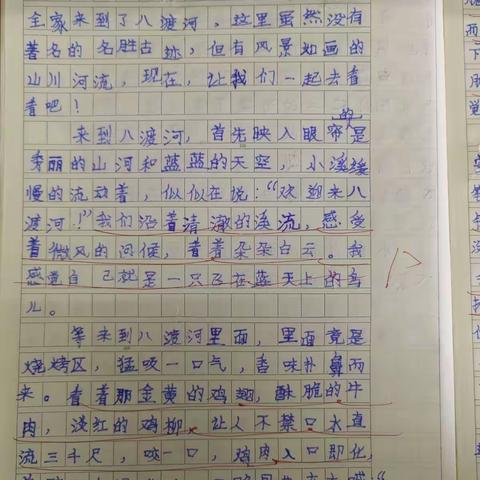 全家来到了八渡河，这里虽然没有
著名的名胜古迹，但有风景如画的
山川河流，现在，让我们一起去看
看吧！
来到八渡河，首先映入眼帘的是
秀丽的山河和蓝蓝的天空，小溪缓
慢的流动着，似似在说：“欢迎来八
渡河！”我们沿着清澈的溪流，感受
着微风的问候，看着朵朵白云。我
感觉自己就是一只飞在蓝天上的鸟
儿。
等来到八渡河里面，里面竟是
烧烤区，猛吸一口气，香味扑鼻而
来。看着那金黄的鸡翅，酥脆的牛
肉，淡红的鸡柳，让人不禁口水直
流三千尺，咬一口，鸡肉入口即化，